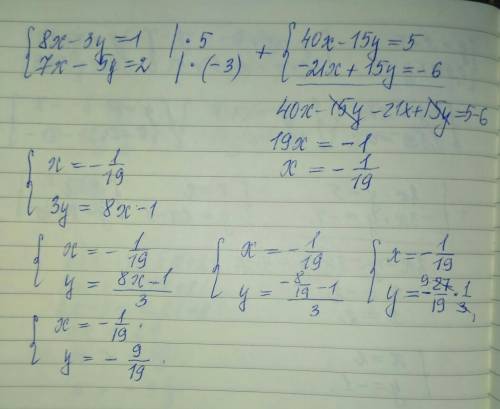 8x - 3y = 1 | · 5
7x - 5y = 2 | · (-3)
+ { 40x - 15y = 5
-21x + 15y = -6
40x - 15y - 21x + 15y = 5 - 6
19x = -1
x = -1/19
{ x = -1/19
3y = 8x - 1
{ x = -1/19
y = (8x - 1)/3
{ x = -1/19
y = (-8/19 - 1)/3
{ x = -1/19
y = -27/19 · 1/3
9
1
{ x = -1/19.
y = -9/19.